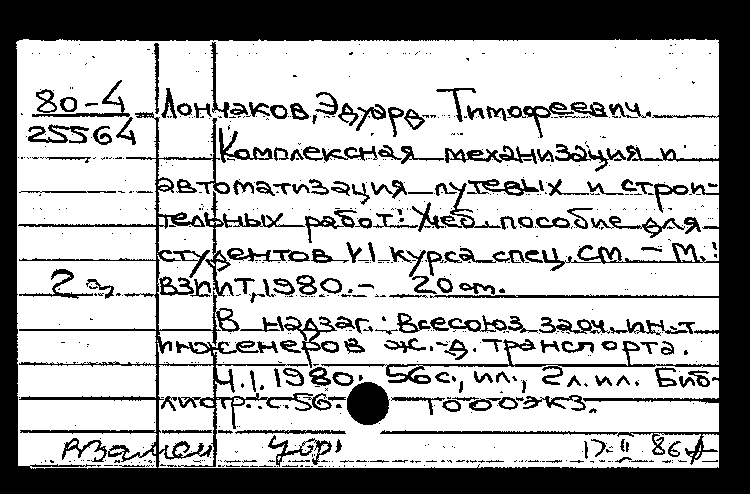 80-4 Лончаков, Эдуард Тимофеевич.
25564
Комплексная механизация и
автоматизация путевых и строи-
тельных работ: Учеб. пособие для
студентов VI курса спец. СМ. - М.:
2 э ВЗИИТ, 1980. - 20 см.
В надзаг.: Всесоюз. заоч. ин-т
инженеров ж.-д. транспорта.
Ч.1. 1980. 56 с., ил., 2 л. ил. Биб-
лиогр.: с. 56. 1000 экз.
Взамен 17 II 86